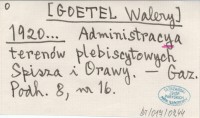 0
[GOETEL Walery]
1920... Administracya
terenów plebiscytowych
Spisza i Orawy. — Gaz.
Podh. 8, nr 16.